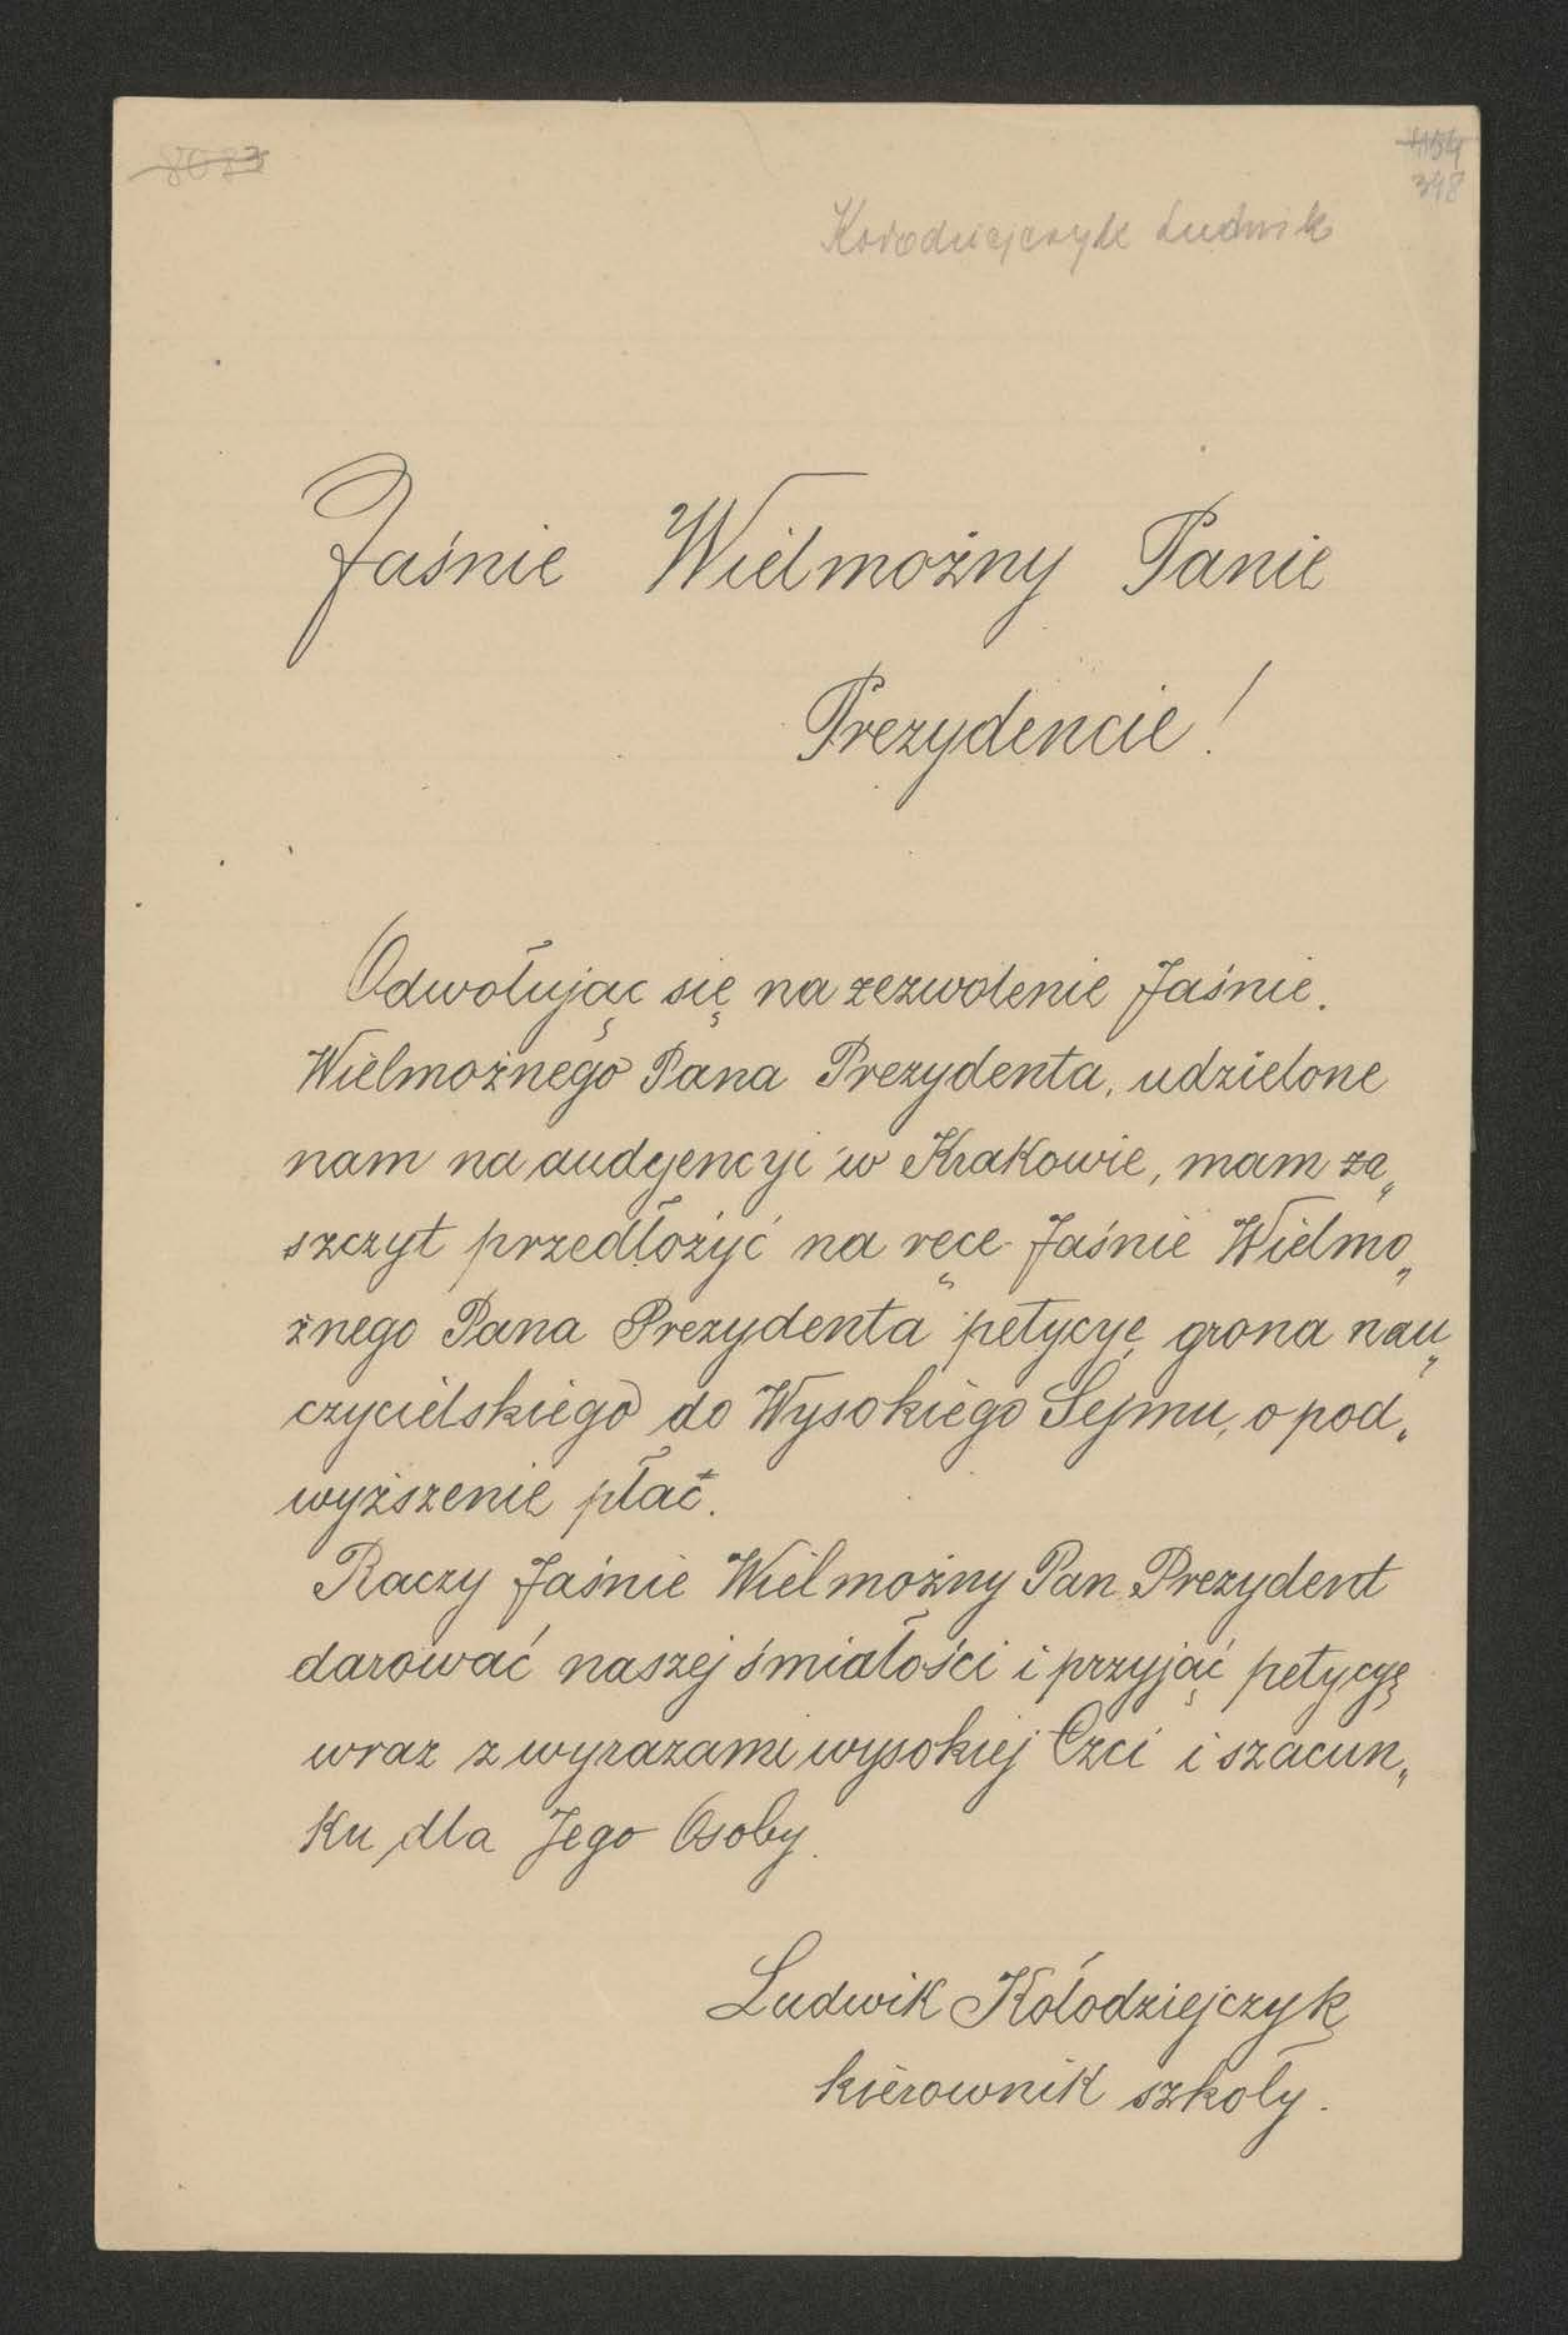 8023
4134
348
Kołodziejczyk Ludwik
Jaśnie Wielmożny Panie
Prezydencie!
Odwołując się na zezwolenie Jaśnie.
Wielmożnego Pana Prezydenta, udzielone
nam na audyencyi w Krakowie, mam za„
szczyt przedłożyć na ręce Jaśnie Wielmo„
żnego Pana Prezydenta petycyę grona nau„
czycielskiego do Wysokiego Sejmu, o pod„
wyższenie płac.
Raczy Jaśnie Wielmożny Pan Prezydent
darować naszej śmiałości i przyjąć petycyę
wraz z wyrazami wysokiej Czci i szacun„
ku dla Jego Osoby.
Ludwik Kołodziejczyk
kierownik szkoły.